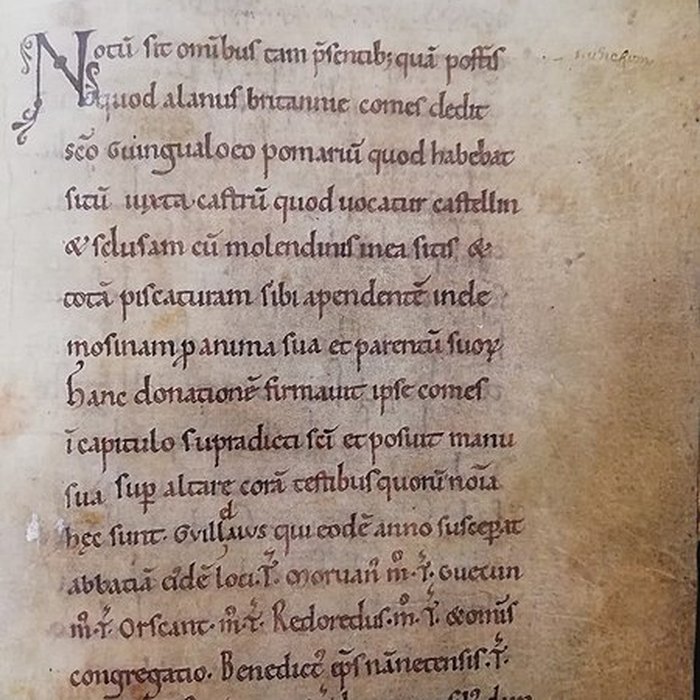 Notū sit omībus tam p̄sentib; quā postis
quod alanus britannie comes dedit
sc̄o Guingualoeo pomariū quod habebat
sitū iuxta castrū quod uocatur castellin
& sclusam cū molendinis in ea sitis &
totā piscaturam sibi apendentē in ele
mosinam ꝑ anima sua et parentū suoꝝ
hanc donationē firmauit ipse comes
ī capitulo supradicti sc̄i et posuit manu
sua suꝑ altare corā testibus quorū noīa
hęc sunt. Guillaws qui eodē anno susceꝑat
abbatiā eidē loci. T̄. Moruan m̊. T̄. Guecun
m̊. T̄. Orscant. m̊. T̄. Redoredus. m̊. T̄. & om̄is
congregatio. Benedict᷒ ep̄s nānetensis. T̄.